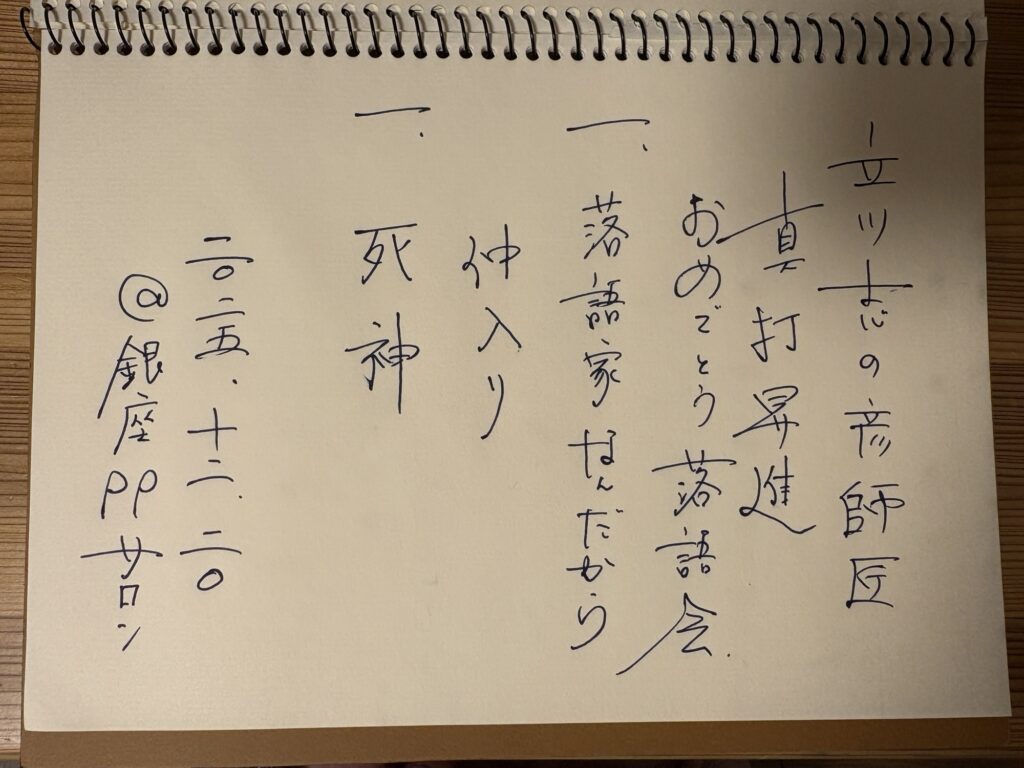 立川志の彦師匠
真打昇進
おめでとう落語会
一、落語家なんだから
仲入り
一、死神
二〇二五.十二.二〇
@銀座PPサロン